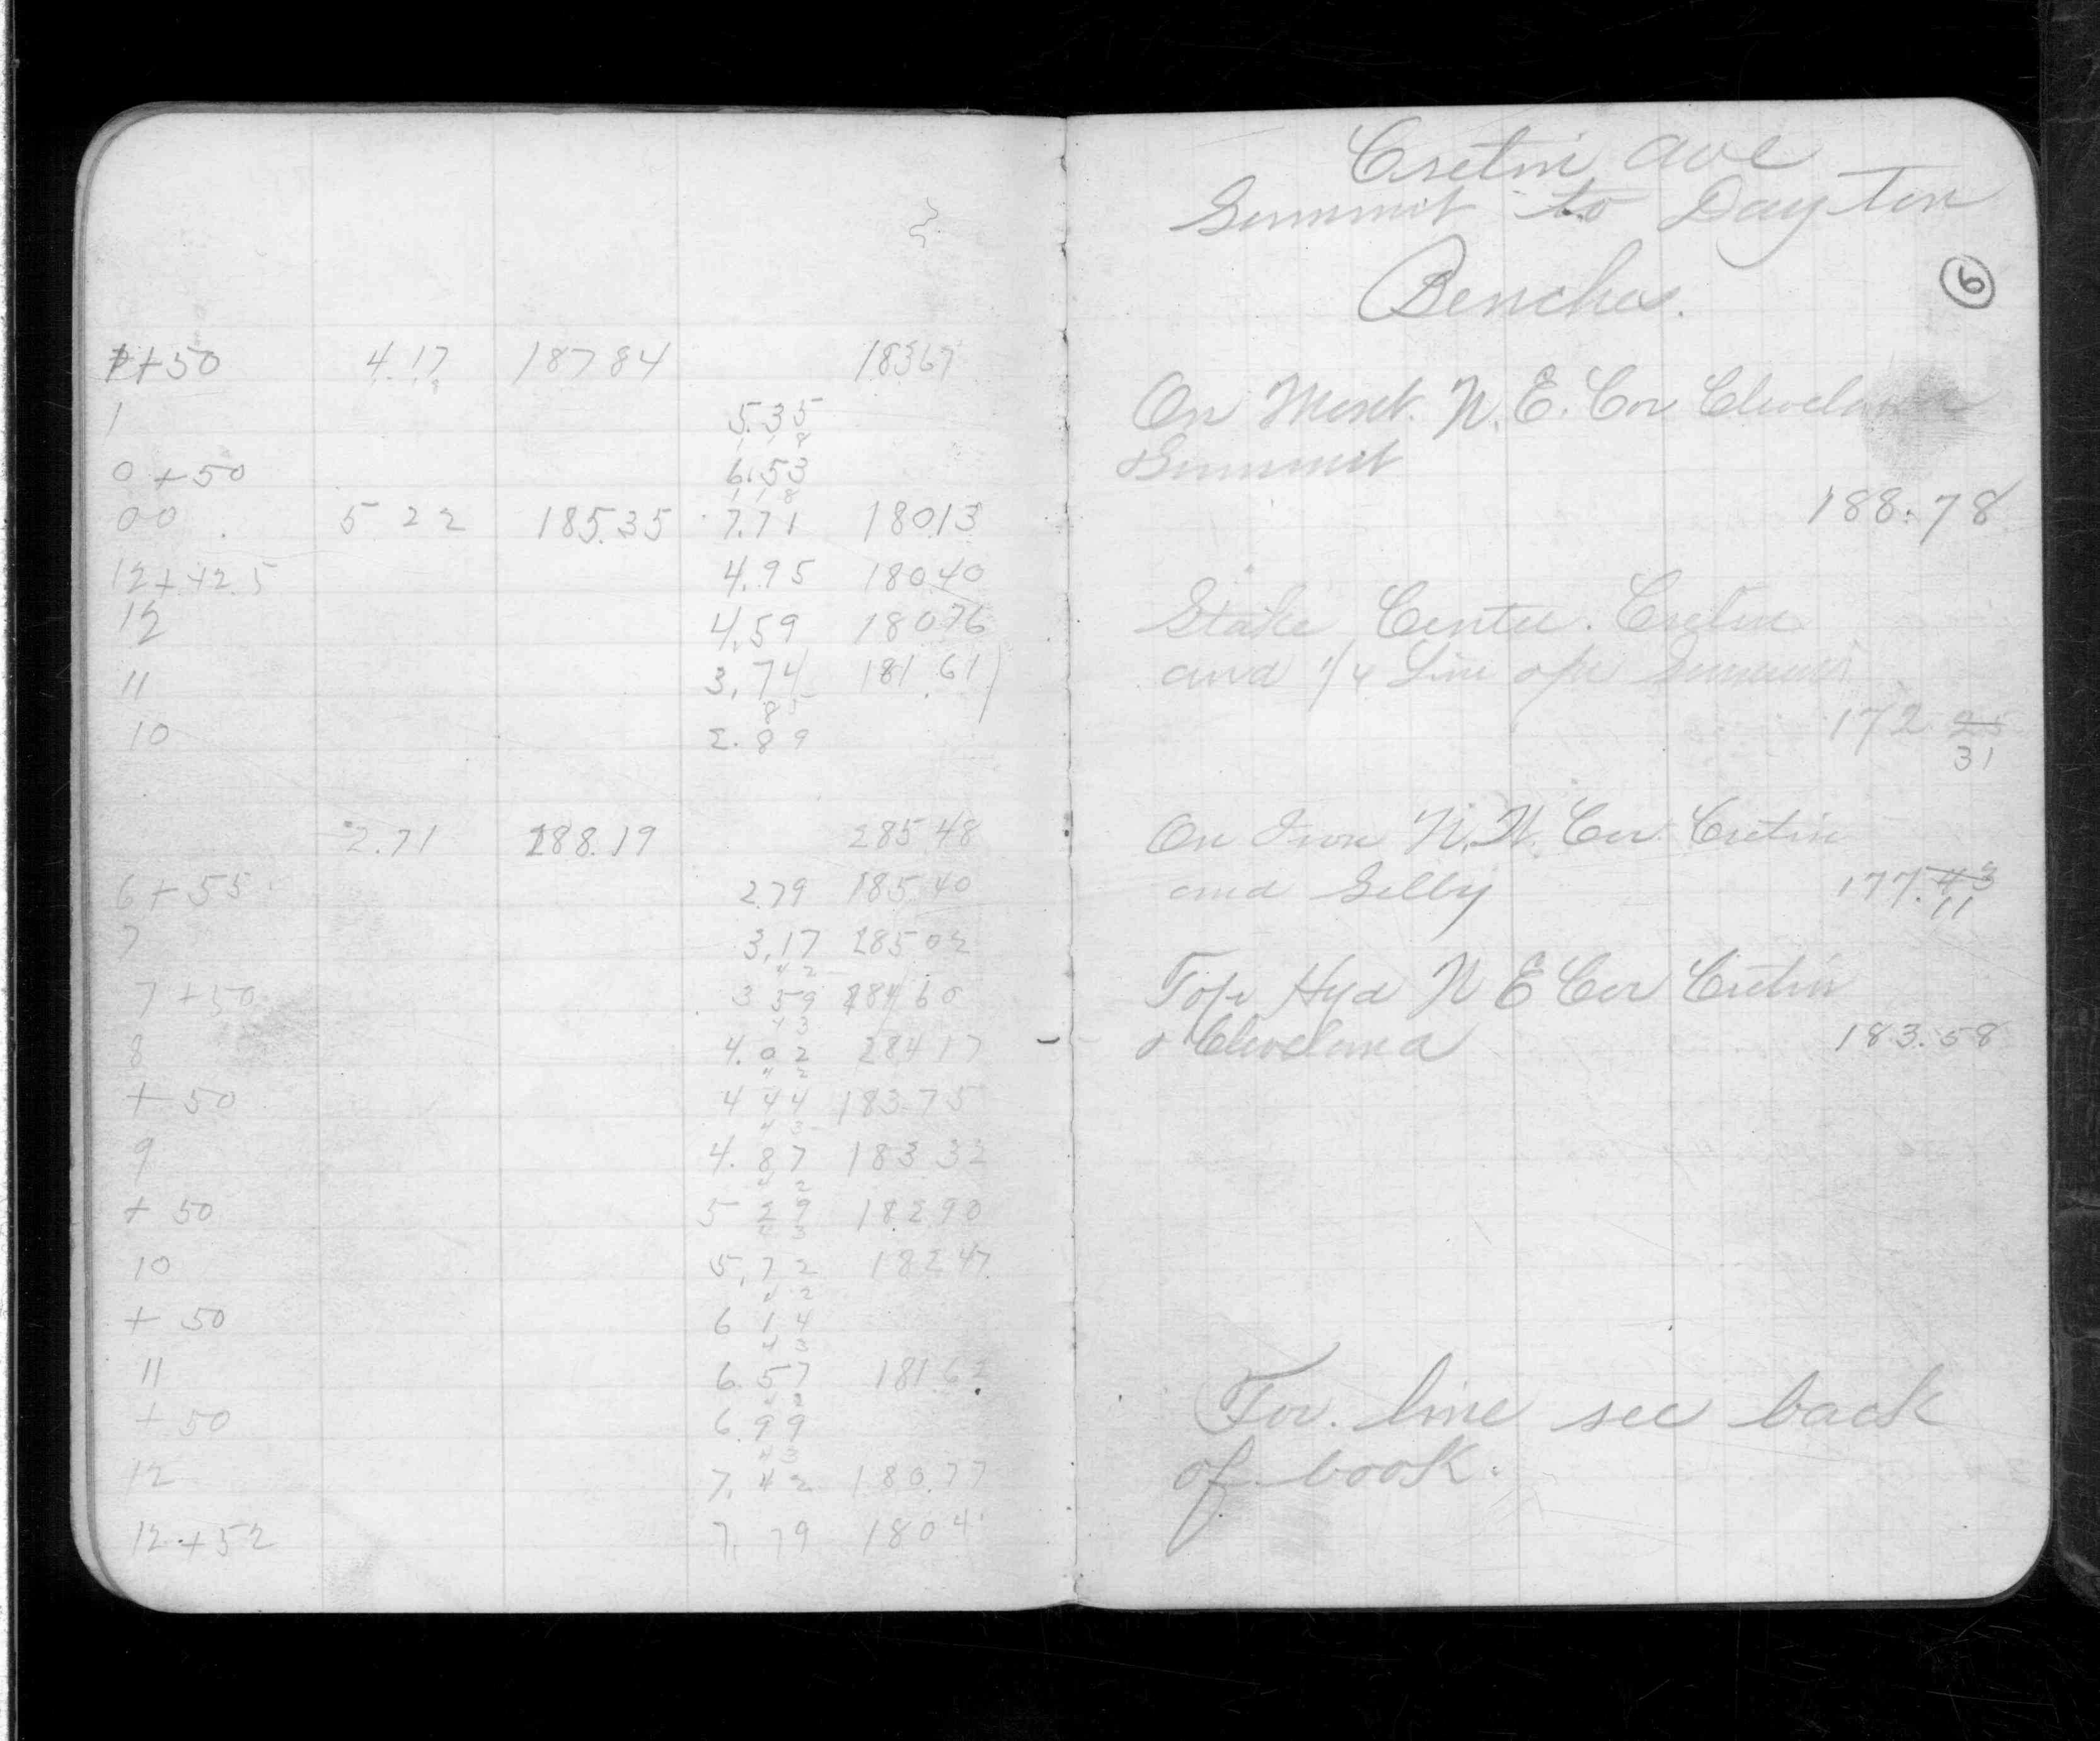 1+50 4.17 187 84 18367
1 5.35
1 1 8
0+50 6.53
1 1 8
00 5 22 185.35 7.71 180.13
12+42.5 4.95 180.40
12 4.59 18076
11 3.74 181.61)
85
10 2.89
2.71 288.19 285 48
6+55 2.79 185 40
7 3.17 285 02
4 2
7+50 3 59 284 60
4 3
8 4.02 284 17
4 2
+50 4 44 183 75
4 3
9 4.87 183 32
4 2
+50 5 29 182 90
4 3
10 5.72 182 47
4 2
+50 6 14
4 3
11 6.57 181 62
4 2
+50 6.99
4 3
12 7.42 180.77
12+52 7.79 180 4
Cretin Ave
Summit to Dayton
Benches.
6
On Mont. N.E. Cor Cleveland
Summit
188.78
Stake Center. Cretin
and 1/4 Line ope Summit
172 25
31
On Iron N.W. Cor. Cretin
and Selby 177.43
11
Top Hyd N E Cor Cretin
& Cleveland 183.58
For. line see back
of book.